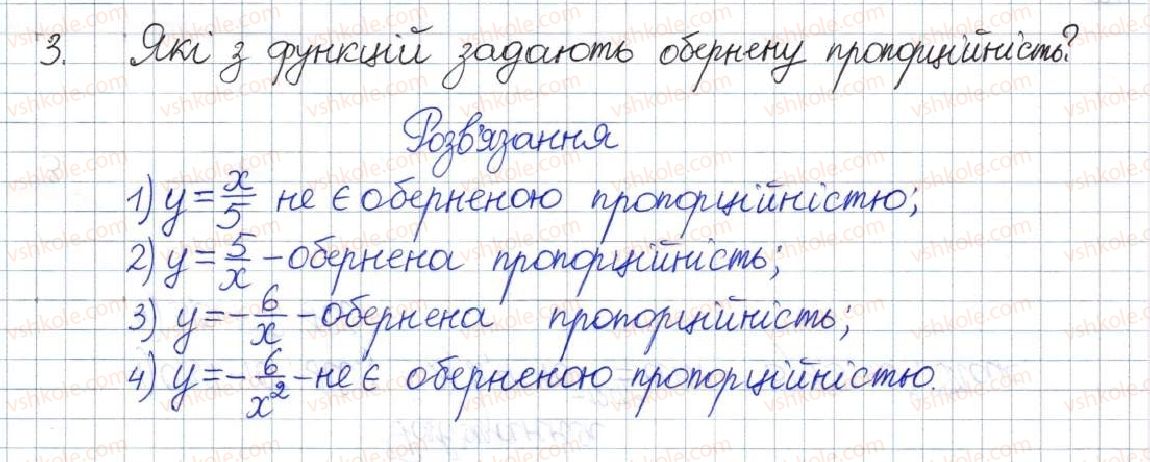 3. Які з функцій задають обернену пропорційність?
Розв'язання
1) y = x/5 не є оберненою пропорційністю;
2) y = 5/x - обернена пропорційність;
3) y = - 6/x - обернена пропорційність;
4) y = - 6/x² - не є оберненою пропорційністю.